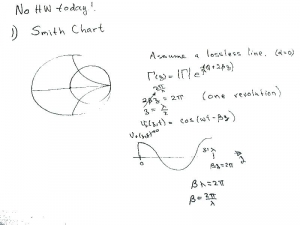 No HW today!
1) Smith Chart
Assume a lossless line, (α=0)
Γ(z) = |Γ| e^{j(θ+2βz)}
2βz = 2π (one revolution)
z = λ/2
= cos(ωt - βz)
0
z=λ
βz=2π
βλ=2π
β=2π/λ